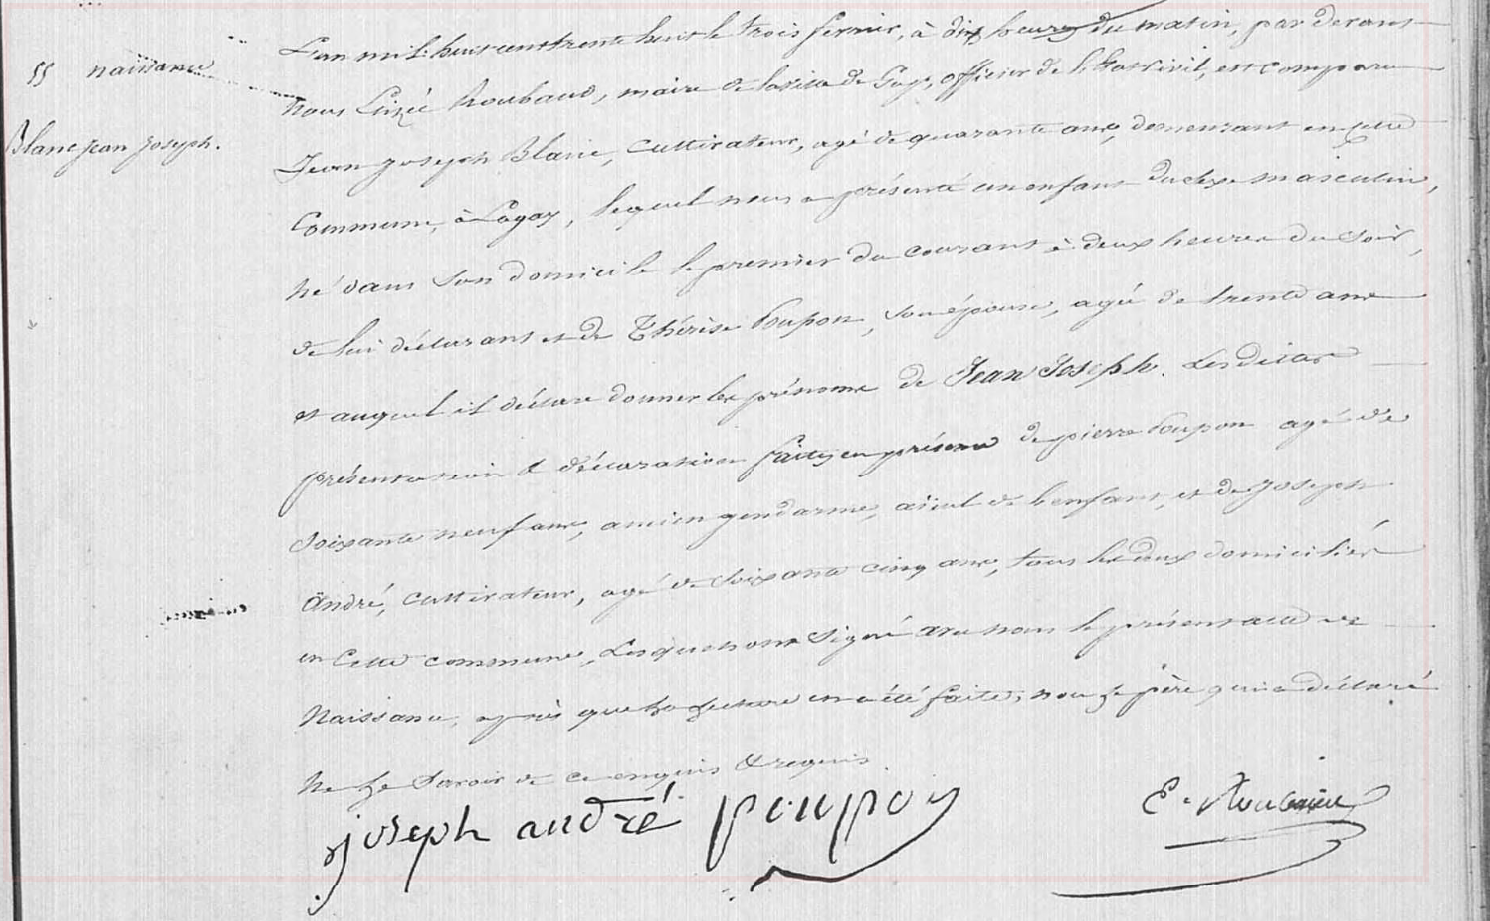 55 naissance
Blanc jean joseph.
L'an mil huit cent trente huit le trois fevrier, à dix heures du matin, par devant
Nous Elizée Roubaud, maire de la ville de officier de l'état civil, est comparu
Jean joseph Blanc, Cultivateur, agé de quarante ans, demeurant en cette
Commune, à Lagay, lequel nous a présenté un enfant du sexe masculin,
né dans son domicile le premier du courant à deux heures du soir,
de lui déclarant et de Thérèse Poupon, son épouse, agée de trente ans
et auquel il déclare donner les prénoms de Jean Joseph. Lesdites
présentation & déclaration faites en présence de pierre Poupon agé de
soixante neuf ans, ancien gendarme, aïeul de l'enfant, et de Joseph
André, cultivateur, agé de soixante cinq ans, tous les deux domiciliés
en Cette commune, Lesquels ont signé avec nous le présent acte de
Naissance, après que lecture en a été faite, non le père qui a déclaré
Ne le Savoir de ce enquis & requis.
joseph andré poupon E. Roubaud